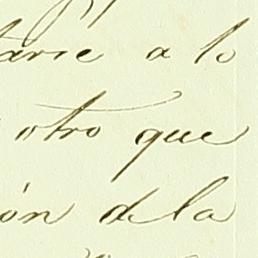 tarse a lo
otro que
ón de la